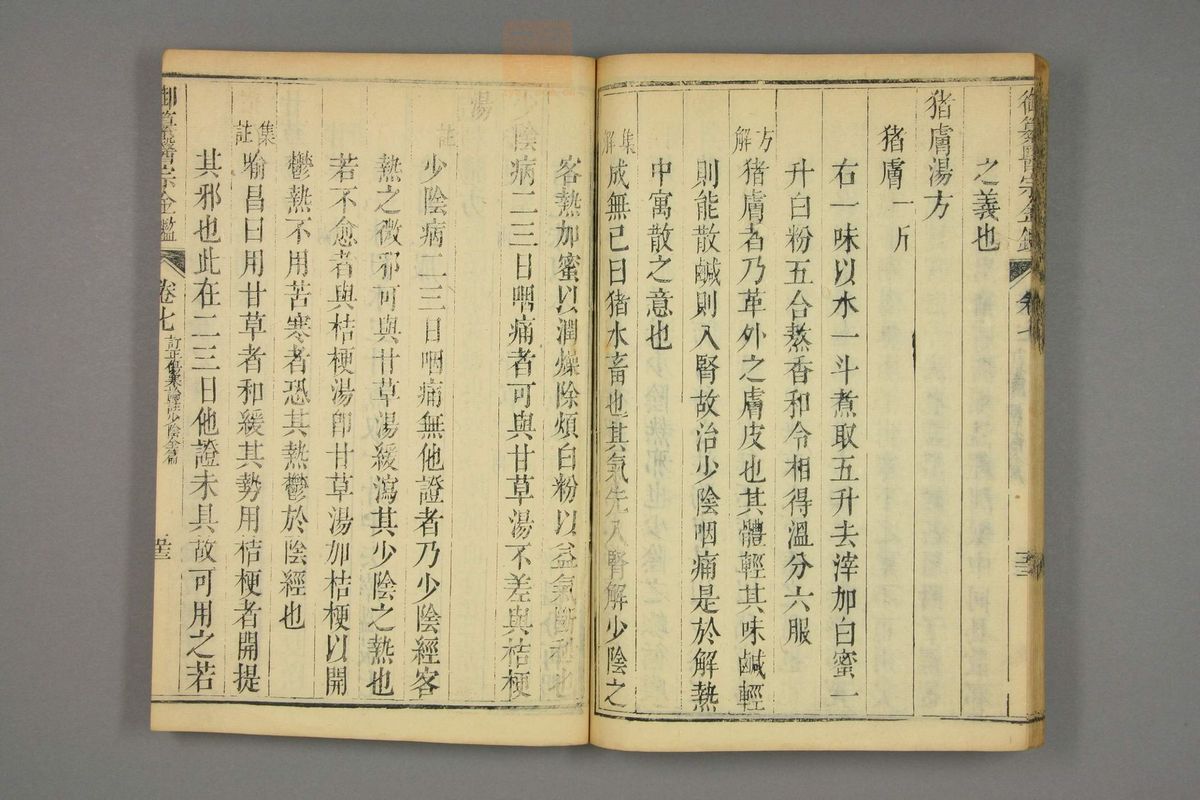 御纂醫宗金鑑
卷七
之義也
猪膚湯方
猪膚一斤
右一味以水一斗煮取五升去滓加白蜜一
升白粉五合熬香和令相得溫分六服
方解
猪膚者乃革外之膚皮也其體輕其味鹹輕
則能散鹹則入腎故治少陰咽痛是於解熱
中寓散之意也
集解
成無己曰猪水畜也其氣先入腎解少陰之
客熱加蜜以潤燥除煩白粉以益氣斷利也
少陰病二三日咽痛者可與甘草湯不差與桔梗
湯
註
少陰病二三日咽痛無他證者乃少陰經客
熱之微邪可與甘草湯緩瀉其少陰之熱也
若不愈者與桔梗湯卽甘草湯加桔梗以開
鬱熱不用苦寒者恐其熱鬱於陰經也
集註
喻昌曰用甘草者和緩其勢用桔梗者開提
其邪也此在二三日他證未具故可用之若
御纂醫宗金鑑
卷七
少陰全篇